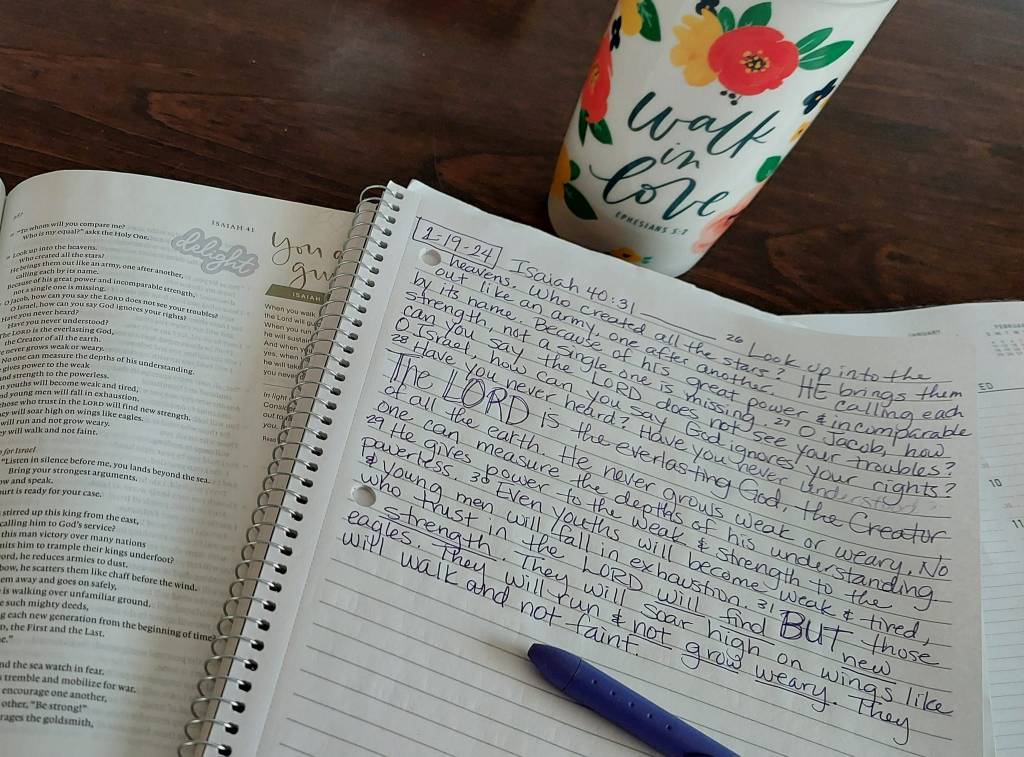 ISAIAH 41
"To whom will you compare me?
Who is my equal?" asks the Holy One.
Look up into the heavens.
Who created all the stars?
He brings them out like an army, one after another,
calling each by its name.
Because of his great power and incomparable strength,
not a single one is missing.
O Jacob, how can you say the LORD does not see your troubles?
O Israel, how can you say God ignores your rights?
Have you never heard?
Have you never understood?
The LORD is the everlasting God,
the Creator of all the earth.
never grows weak or weary.
No one can measure the depths of his understanding.
gives power to the weak
and strength to the powerless.
youths will become weak and tired,
and young men will fall in exhaustion.
those who trust in the LORD will find new strength.
They will soar high on wings like eagles.
will run and not grow weary.
will walk and not faint.
for Israel
"Listen in silence before me, you lands beyond the sea.
Bring your strongest arguments.
now and speak.
court is ready for your case.
stirred up this king from the east,
calling him to God's service?
this man victory over many nations
permits him to trample their kings underfoot?
sword, he reduces armies to dust.
bow, he scatters them like chaff before the wind.
them away and goes on safely,
is walking over unfamiliar ground.
such mighty deeds,
each new generation from the beginning of time?
the First and the Last.
and the sea watch in fear.
tremble and mobilize for war.
encourage one another,
other, "Be strong!"
the goldsmith,
delight
you
ISAIAH
When you walk
the Lord will
When you run
he will
And when
yes, when
he will
you never
In light
Consid
out to
you.
Read
walk
in
love
EPHESIANS 5:2
1-19-24 Isaiah 40:31 26 Look up into the
heavens. Who created all the stars? HE brings them
out like an army, one after another, calling each
by its name. Because of his great power & incomparable
strength, not a single one is missing. 27 O Jacob, how
can you say the LORD does not see your troubles?
O Israel, how can you say God ignores your rights?
28 Have you never heard? Have you never understood?
The LORD is the everlasting God, the Creator
of all the earth. He never grows weak or weary. No
one can measure the depths of his understanding
29 He gives power to the weak & strength to the
powerless. 30 Even youths will become weak & tired,
& young men will fall in exhaustion. 31 BUT those
who trust in the LORD will find new
strength. They will soar high on wings like
eagles. They will run & not grow weary. They
will walk and not faint.
JANUARY
FEBRUARY
ED
10
11